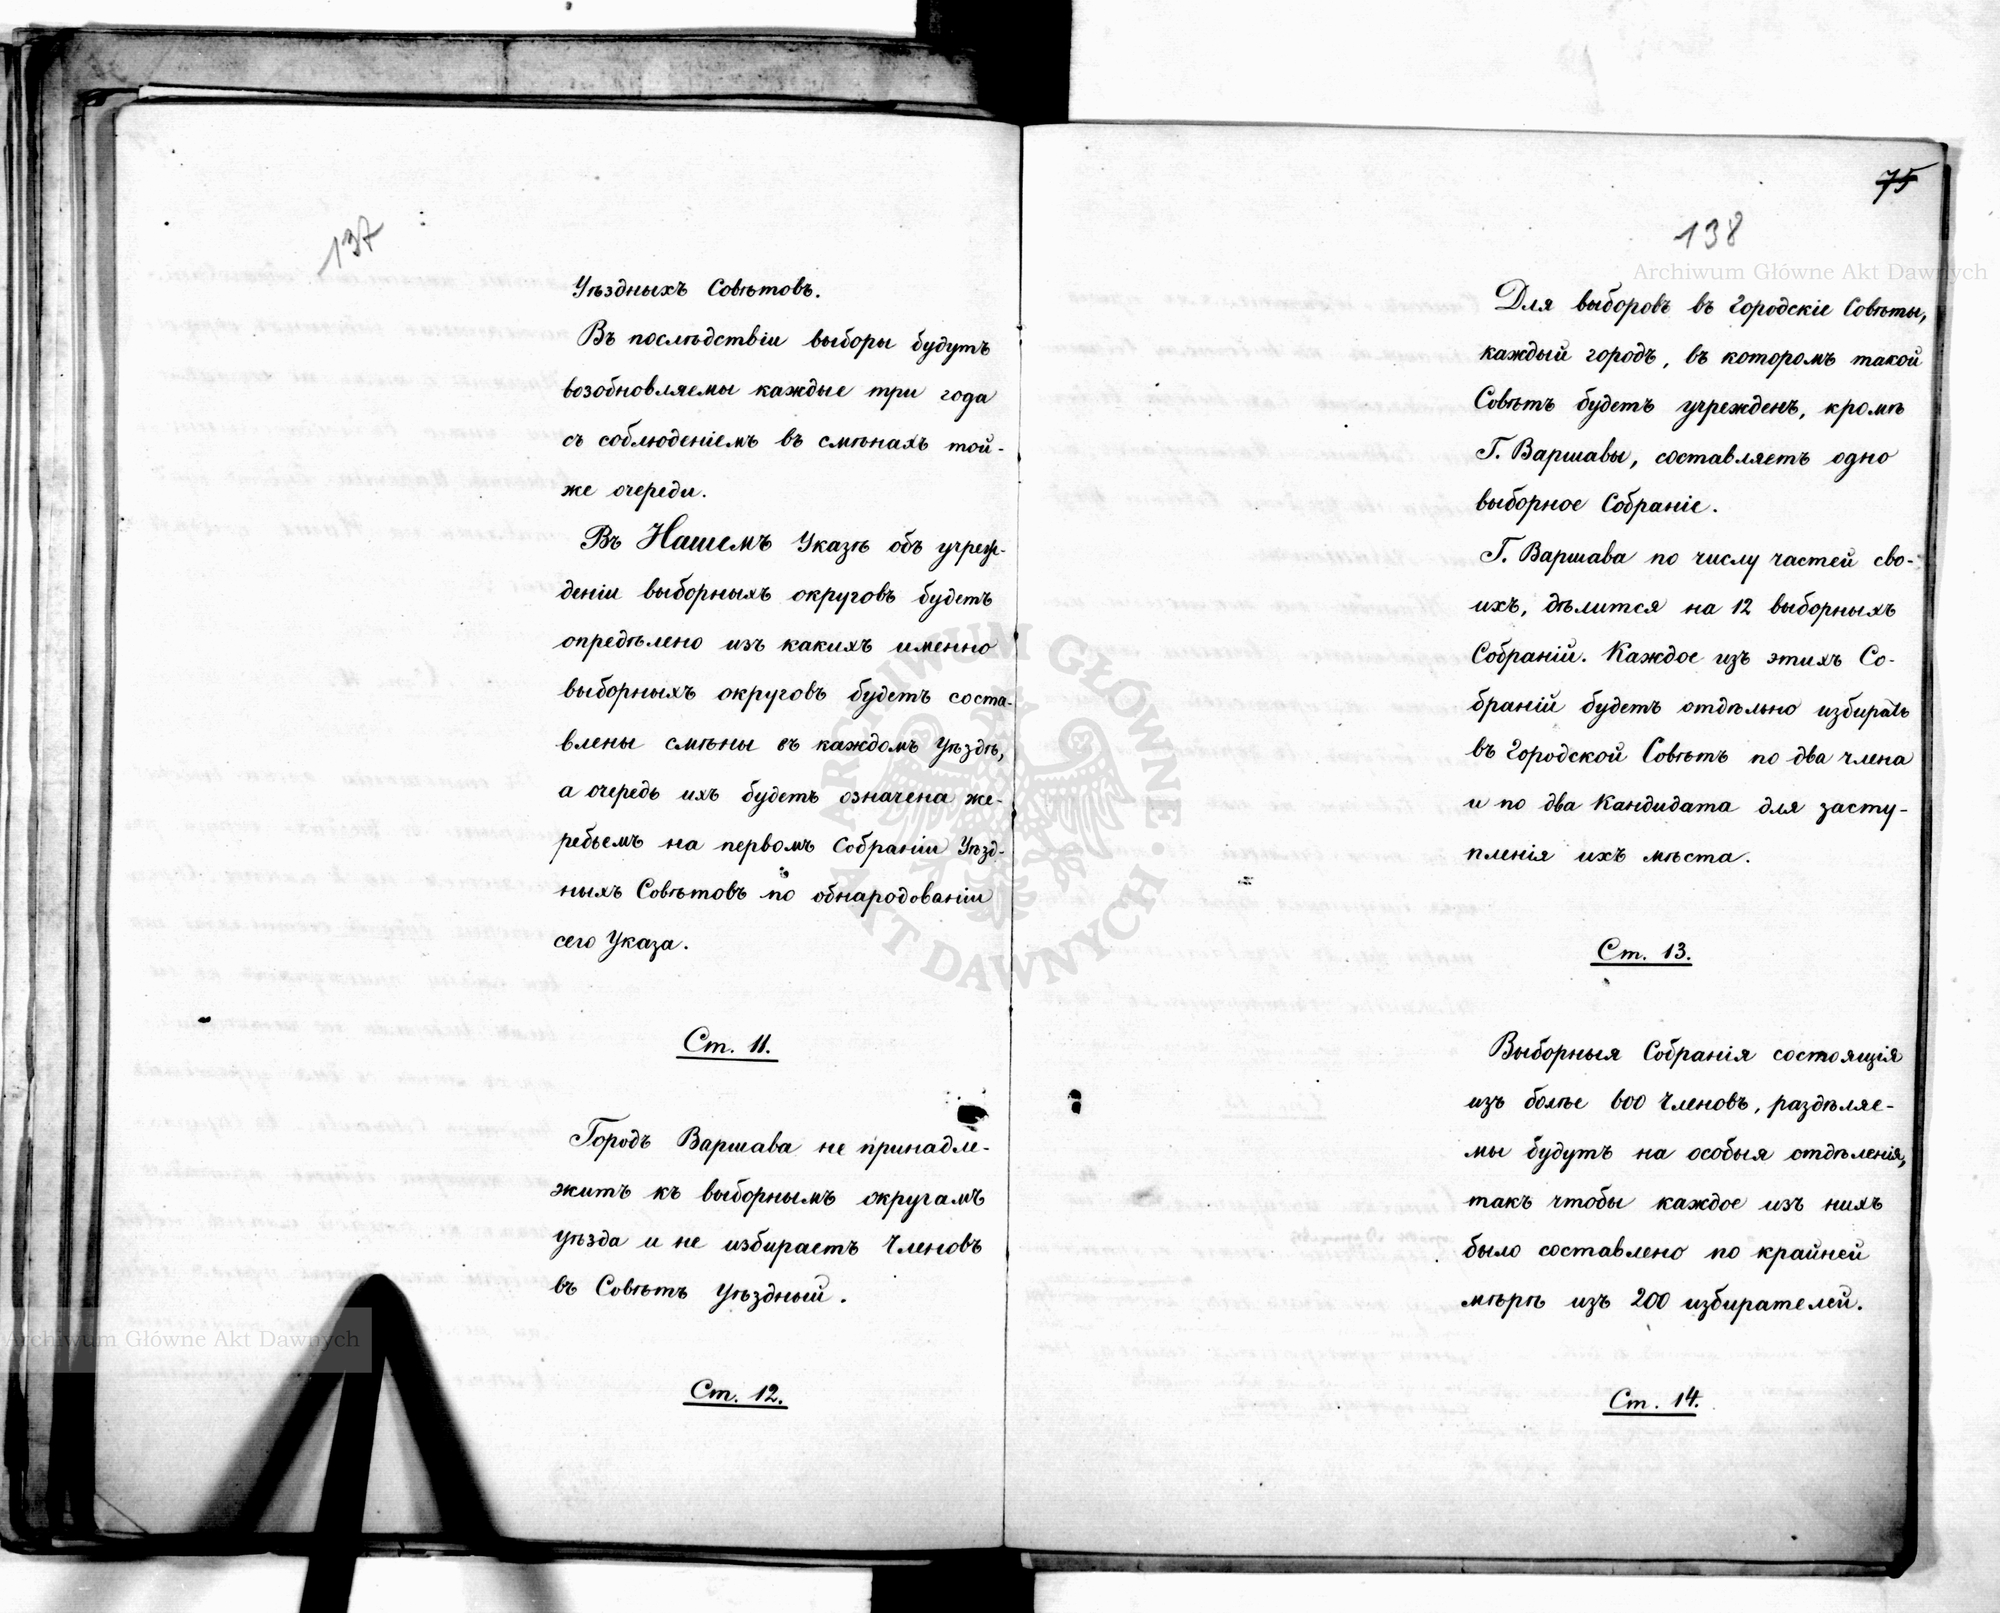 137
Уѣздныхъ Совѣтовъ.
Въ послѣдствіи выборы будутъ
возобновляемы каждые три года
съ соблюденіемъ въ смѣнахъ той-
же очереди.
Въ Нашемъ Указѣ объ учреж-
деніи выборныхъ округовъ будетъ
опредѣлено изъ какихъ именно
выборныхъ округовъ будетъ соста-
влены смѣны въ каждомъ Уѣздѣ,
а очередь ихъ будетъ означена же-
ребьемъ на первомъ Собраніи Уѣзд-
ныхъ Совѣтовъ по обнародованіи
сего Указа.
Ст. 11.
Городъ Варшава не принадле-
житъ къ выборнымъ округамъ
уѣзда и не избираетъ Членовъ
въ Совѣтъ Уѣздный.
Ст. 12.
75
138
Для выборовъ въ Городскіе Совѣты,
каждый городъ, въ которомъ такой
Совѣтъ будетъ учрежденъ, кромѣ
Г. Варшавы, составляетъ одно
выборное Собраніе.
Г. Варшава по числу частей сво-
ихъ, дѣлится на 12 выборныхъ
Собраній. Каждое изъ этихъ Со-
браній будетъ отдѣльно избирать
въ Городской Совѣтъ по два члена
и по два Кандидата для засту-
пленія ихъ мѣста.
Ст. 13.
Выборныя Собранія состоящія
изъ болѣе 600 Членовъ, раздѣляе-
мы будутъ на особыя отдѣленія,
такъ чтобы каждое изъ нихъ
было составлено по крайней
мѣрѣ изъ 200 избирателей.
Ст. 14.
Archiwum Główne Akt Dawnych
ARCHIWUM GŁÓWNE AKT DAWNYCH
Archiwum Główne Akt Dawnych